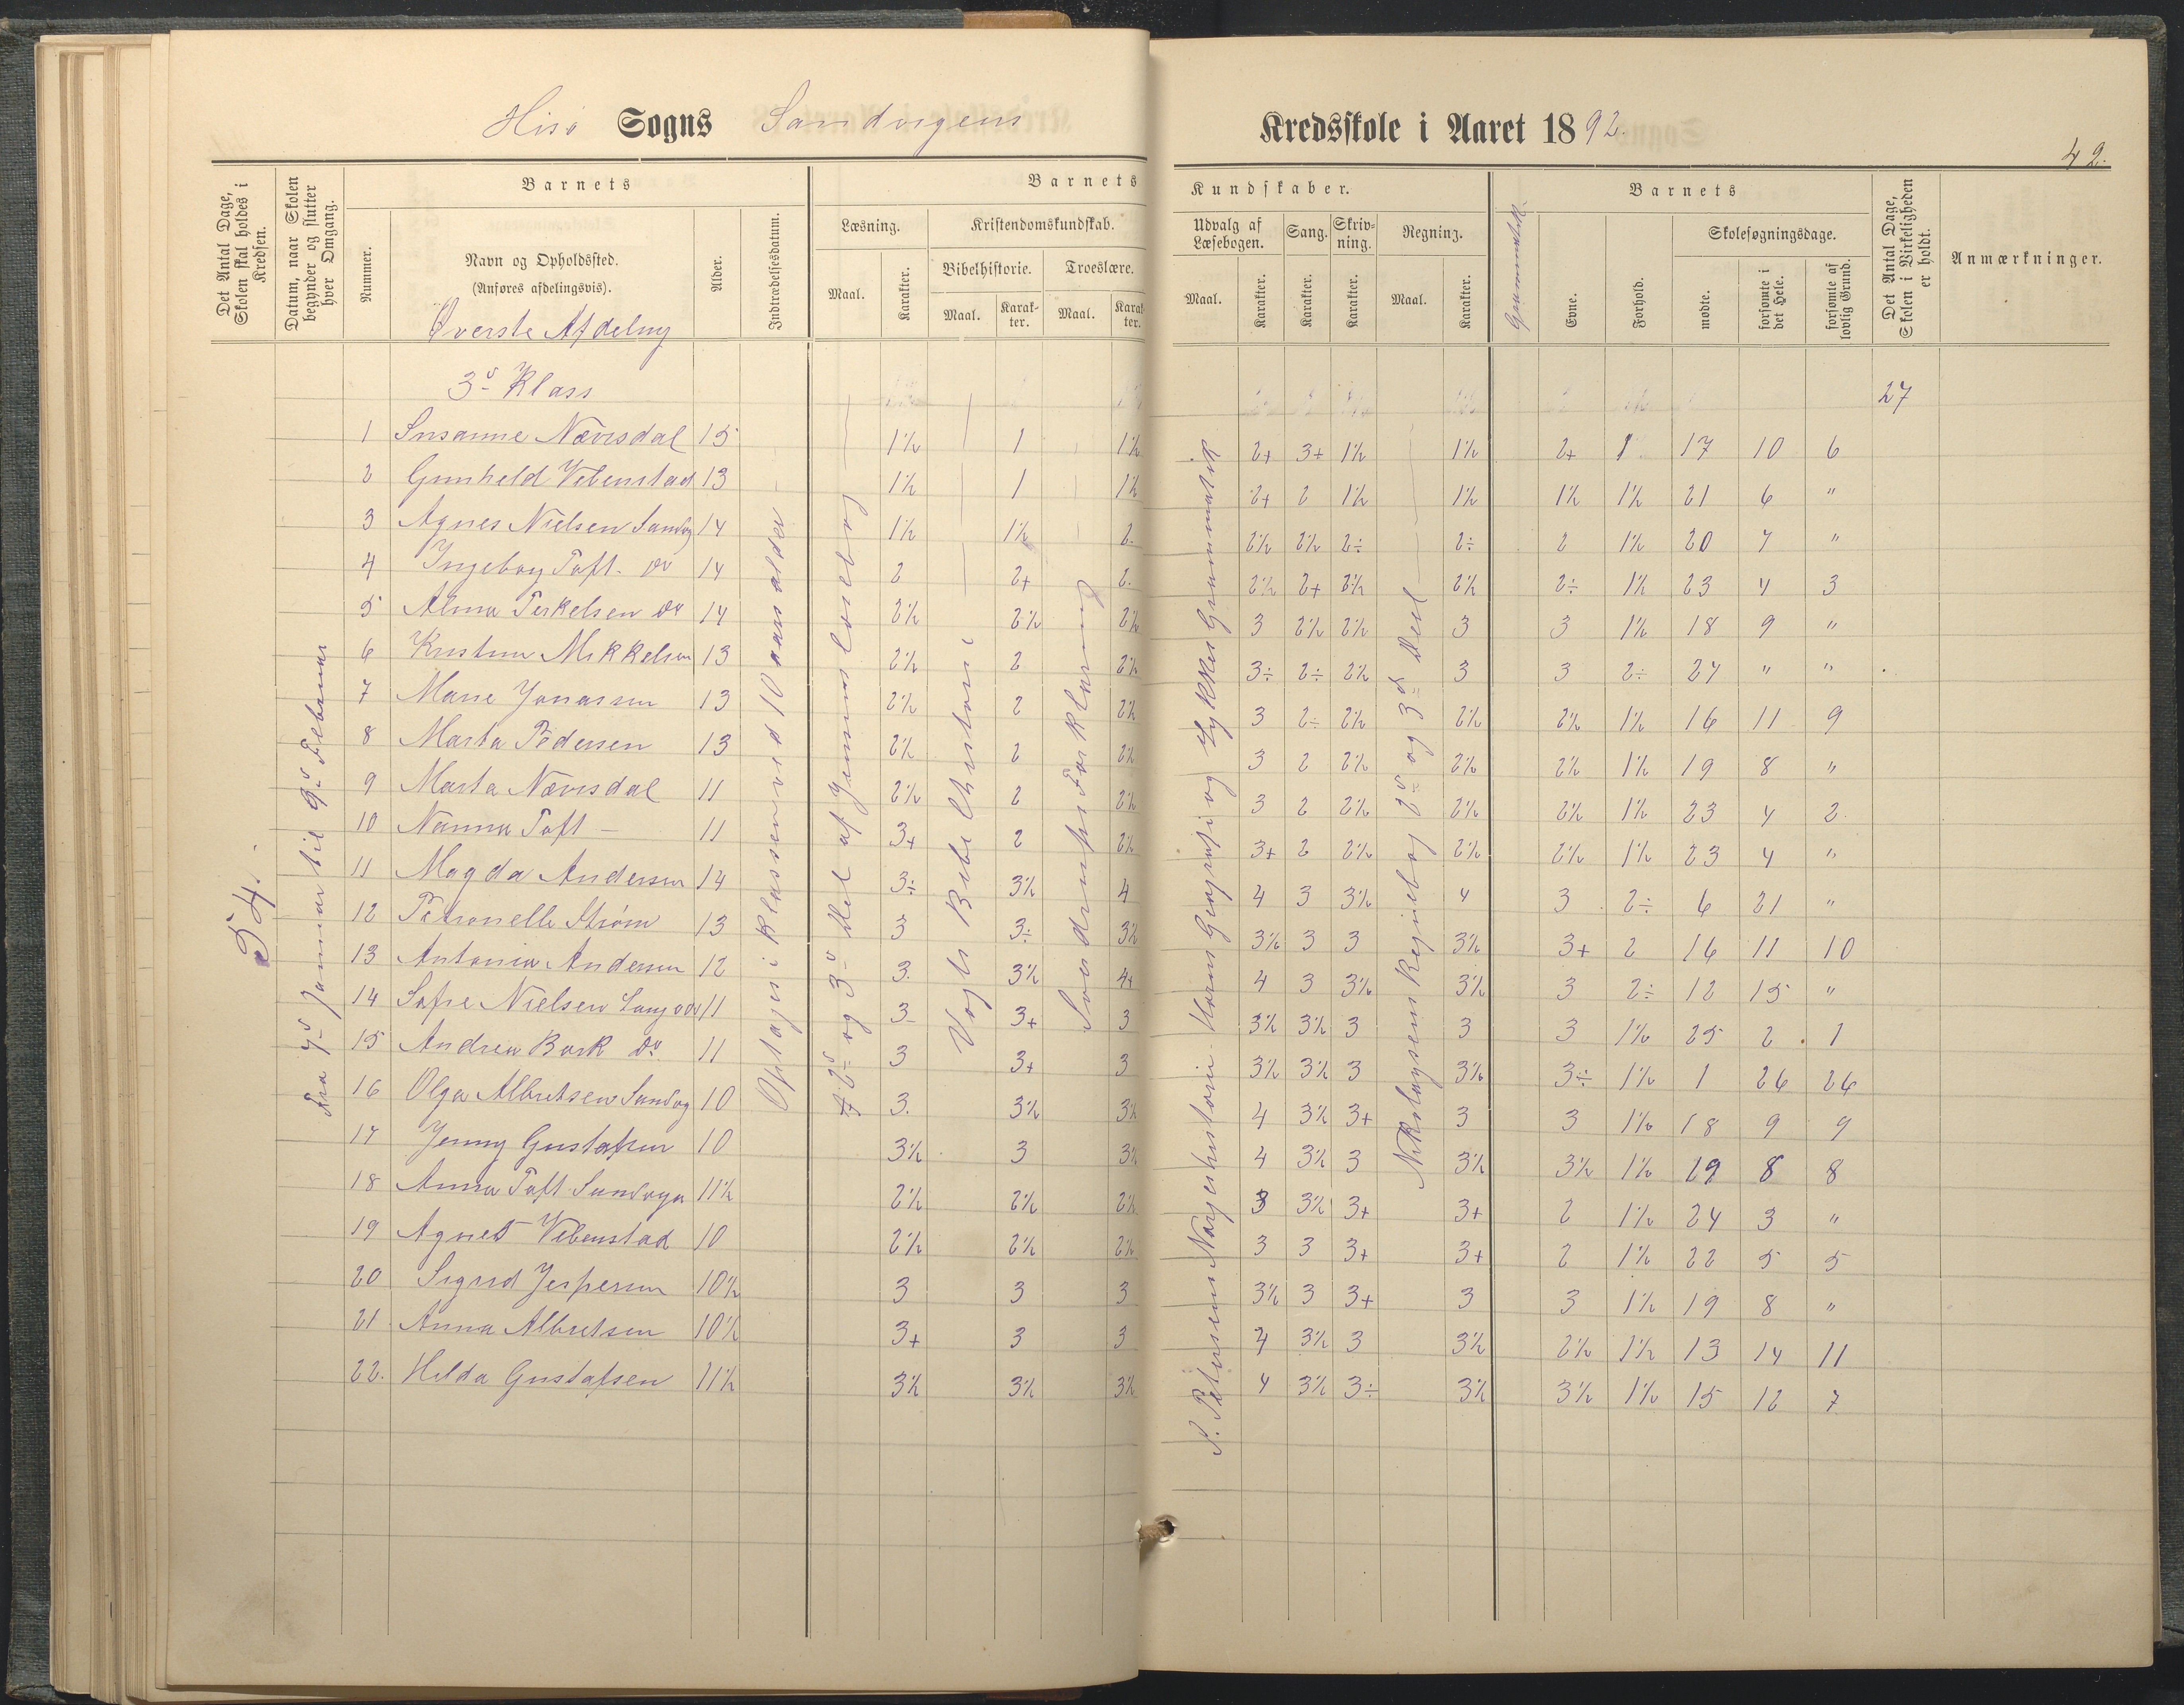 Hisø Sogns Sandvigens Kredsskole i Aaret 1892.
42.
Det Antal Dage, Skolen skal holdes i Kredsen.
Datum, naar Skolen begynder og slutter hver Omgang.
Barnets
Nummer.
Navn og Opholdssted.
(Anføres afdelingsvis).
Alder.
Indtrædelsesdatum.
Barnets Kundskaber.
Læsning.
Maal.
Karakter.
Kristendomskundskab.
Bibelhistorie.
Maal.
Karakter.
Troeslære.
Maal.
Karakter.
Udvalg af Læsebogen.
Maal.
Karakter.
Sang.
Karakter.
Skrivning.
Karakter.
Regning.
Maal.
Karakter.
Grammatik.
Barnets
Evne.
Forhold.
Skolesøgningsdage.
mødte.
forsømte i det Hele.
forsømte af lovlig Grund.
Det Antal Dage, Skolen i Virkeligheden er holdt.
Anmærkninger.
Øverste Afdeling
3die Klass
27
54.
Fra 7de Januar til 9de Februar
Optages i Klassen ved 10 aars alder
2de og 3de Del af Jensens Læsebog
Vogts Bibelhistorie
Sverdrups Forklaring
S. Petersens Norgeshistorie. Horns Geografi og Løkkes Grammatik
Nikolaysens Regnebog 2de og 3de Deel
1 Susanne Nævisdal 15 1½ 1 1½ 2+ 3+ 1½ 1½ 2+ 1 17 10 6
2 Gunhild Vibenstad 13 1½ 1 1½ 2+ 2 1½ 1½ 1½ 1½ 21 6 "
3 Agnes Nielsen Sandvig 14 1½ 1½ 2 2½ 2½ 2÷ 2÷ 2 1½ 20 7 "
4 Ingeborg Toft do 14 2 2+ 2 2½ 2+ 2½ 2½ 2÷ 1½ 23 4 3
5 Alma Terkelsen do 14 2½ 2½ 2½ 3 2½ 2½ 3 3 1½ 18 9 "
6 Kristine Mikkelsen 13 2½ 2 2½ 3÷ 2÷ 2½ 3 3 2÷ 27 " "
7 Marie Jonassen 13 2½ 2 2½ 3 2÷ 2½ 2½ 2½ 1½ 16 11 9
8 Marta Pedersen 13 2½ 2 2½ 3 2 2½ 2½ 2½ 1½ 19 8 "
9 Marta Nævisdal 11 2½ 2 2½ 3 2 2½ 2½ 2½ 1½ 23 4 2
10 Nanna Toft – 11 3+ 2 2½ 3+ 2 2½ 2½ 2½ 1½ 23 4 "
11 Magda Andersen 14 3÷ 3½ 4 4 3 3½ 4 3 2÷ 6 21 "
12 Petronelle Strøm 13 3 3÷ 3½ 3½ 3 3 3½ 3+ 2 16 11 10
13 Antonia Andersen 12 3. 3½ 4+ 4 3 3½ 3½ 3 2÷ 12 15 "
14 Sofie Nielsen 11 3 3+ 3 3½ 3½ 3 3 3 1½ 25 2 1
15 Andrea Bork do 11 3 3+ 3 3½ 3½ 3 3½ 3÷ 1½ 1 26 26
16 Olga Albretsen Sandvig 10 3. 3½ 3½ 4 3½ 3+ 3 3 1½ 18 9 9
17 Jenny Gustafsen 10 3½ 3 3½ 4 3½ 3 3½ 3½ 1½ 19 8 8
18 Anna Toft Sandvigen 11½ 2½ 2½ 2½ 3 3½ 3+ 3+ 2 1½ 24 3 "
19 Agnes Vibenstad 10 2½ 2½ 2½ 3 3 3+ 3+ 2 1½ 22 5 5
20 Sigrid Jespersen 10½ 3 3 3 3½ 3 3+ 3 3 1½ 19 8 "
21 Anna Albretsen 10½ 3+ 3 3 4 3½ 3 3½ 2½ 1½ 13 14 11
22. Hilda Gustafsen 11½ 3½ 3½ 3½ 4 3½ 3÷ 3½ 3½ 1½ 15 12 7